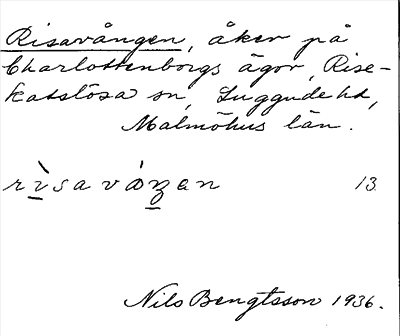 Risavången, åker på
Charlottenborgs ägor, Rise-
katslösa sn, Luggude hd,
Malmöhus län.
rìsaváŋan 13.
Nils Bengtsson 1936.